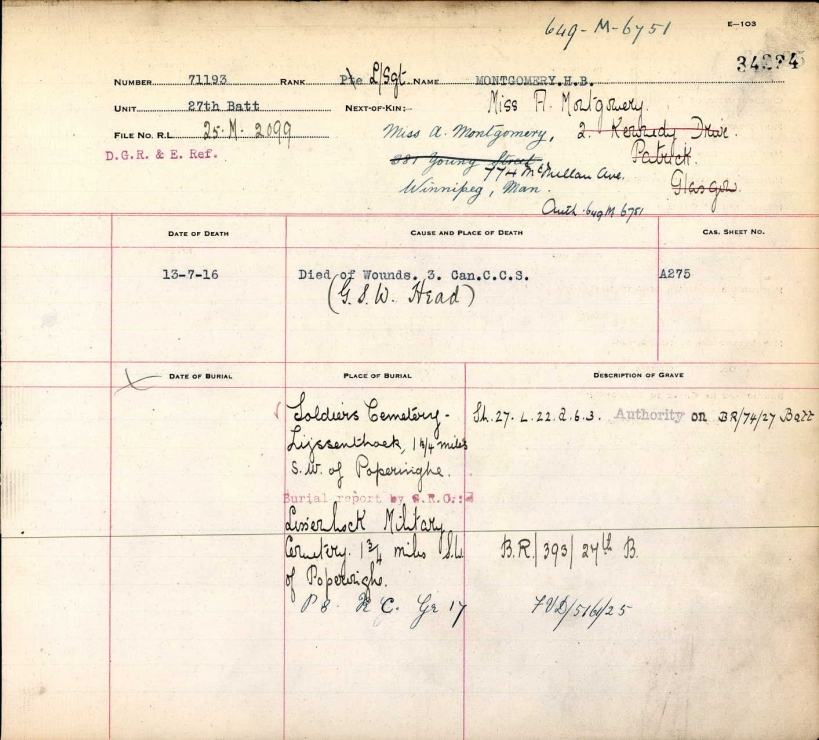 649-M-6751
E—103
34224
NUMBER 71193 RANK Pte L/Sgt. NAME MONTGOMERY.H.B.
UNIT 27th Batt NEXT-OF-KIN:- Miss A. Montgomery.
FILE NO. R.L. 25-M-2099 Miss A. Montgomery, 2. Kennedy Drive.
D.G.R. & E. Ref. 281 Young Street Patrick.
774 McMillan Ave. Glasgow.
Winnipeg, Man.
Auth. 649 M 6751
DATE OF DEATH CAUSE AND PLACE OF DEATH CAS. SHEET NO.
13-7-16 Died of Wounds. 3. Can.C.C.S. A275
(G.S.W. Head)
DATE OF BURIAL PLACE OF BURIAL DESCRIPTION OF GRAVE
Soldiers Cemetery - Sh. 27. L. 22. d. 6. 3. Authority on BR/74/27 Batt
Lijssenthoek, 1¾ miles
S.W. of Poperinghe.
Burial report by G.R.O.:-
Lissenhock Military
Cemetery. 1¾ miles S.W. B.R./393/27th B.
of Poperinghe.
P 8. R C. Gr 17